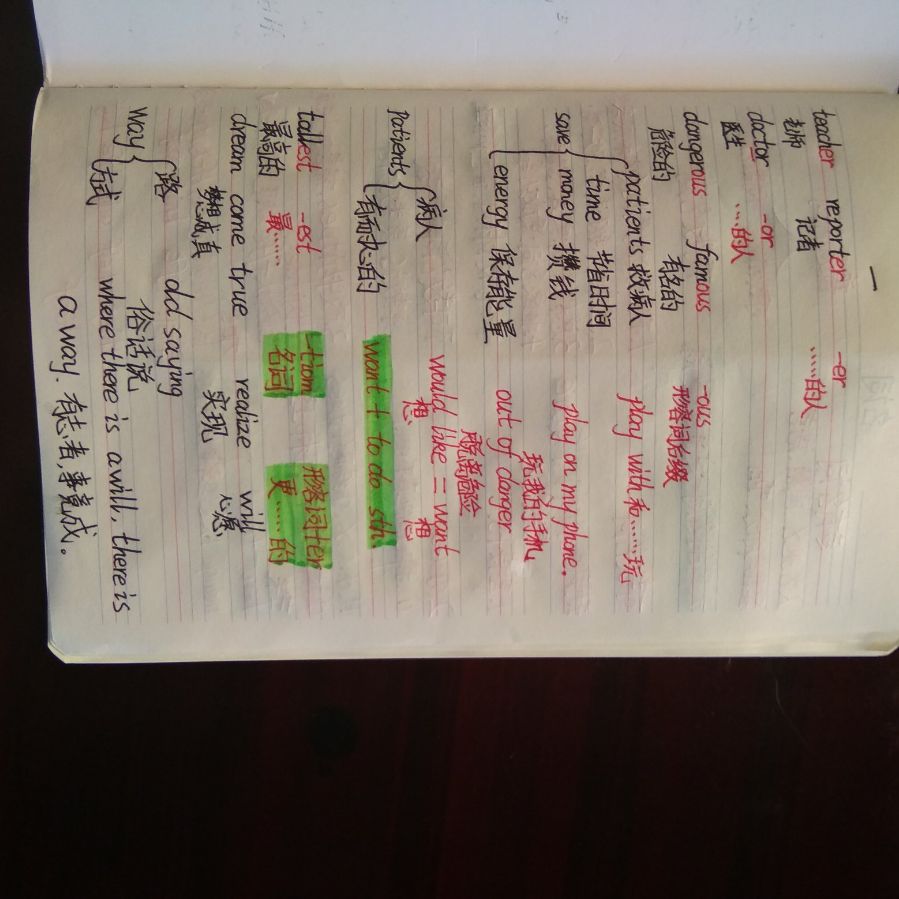 一
teacher reporter -er
老师 记者 ……的人
doctor -or
医生 ……的人
dangerous famous -ous
危险的 有名的 形容词后缀
save patients 救病人 play with 和……玩
time 节省时间
money 攒钱 play on my phone.
玩我的手机
energy 保存能量 out of danger
脱离危险
patients 病人 would like = want
想 想
有耐心的 want + to do sth
tallest -est -tion 形容词+er
最高的 最…… 名词 更……的
dream come true realize will
梦想成真 实现 心愿
way 路 old saying
方式 俗话说
where there is a will, there is
a way. 有志者,事竟成。